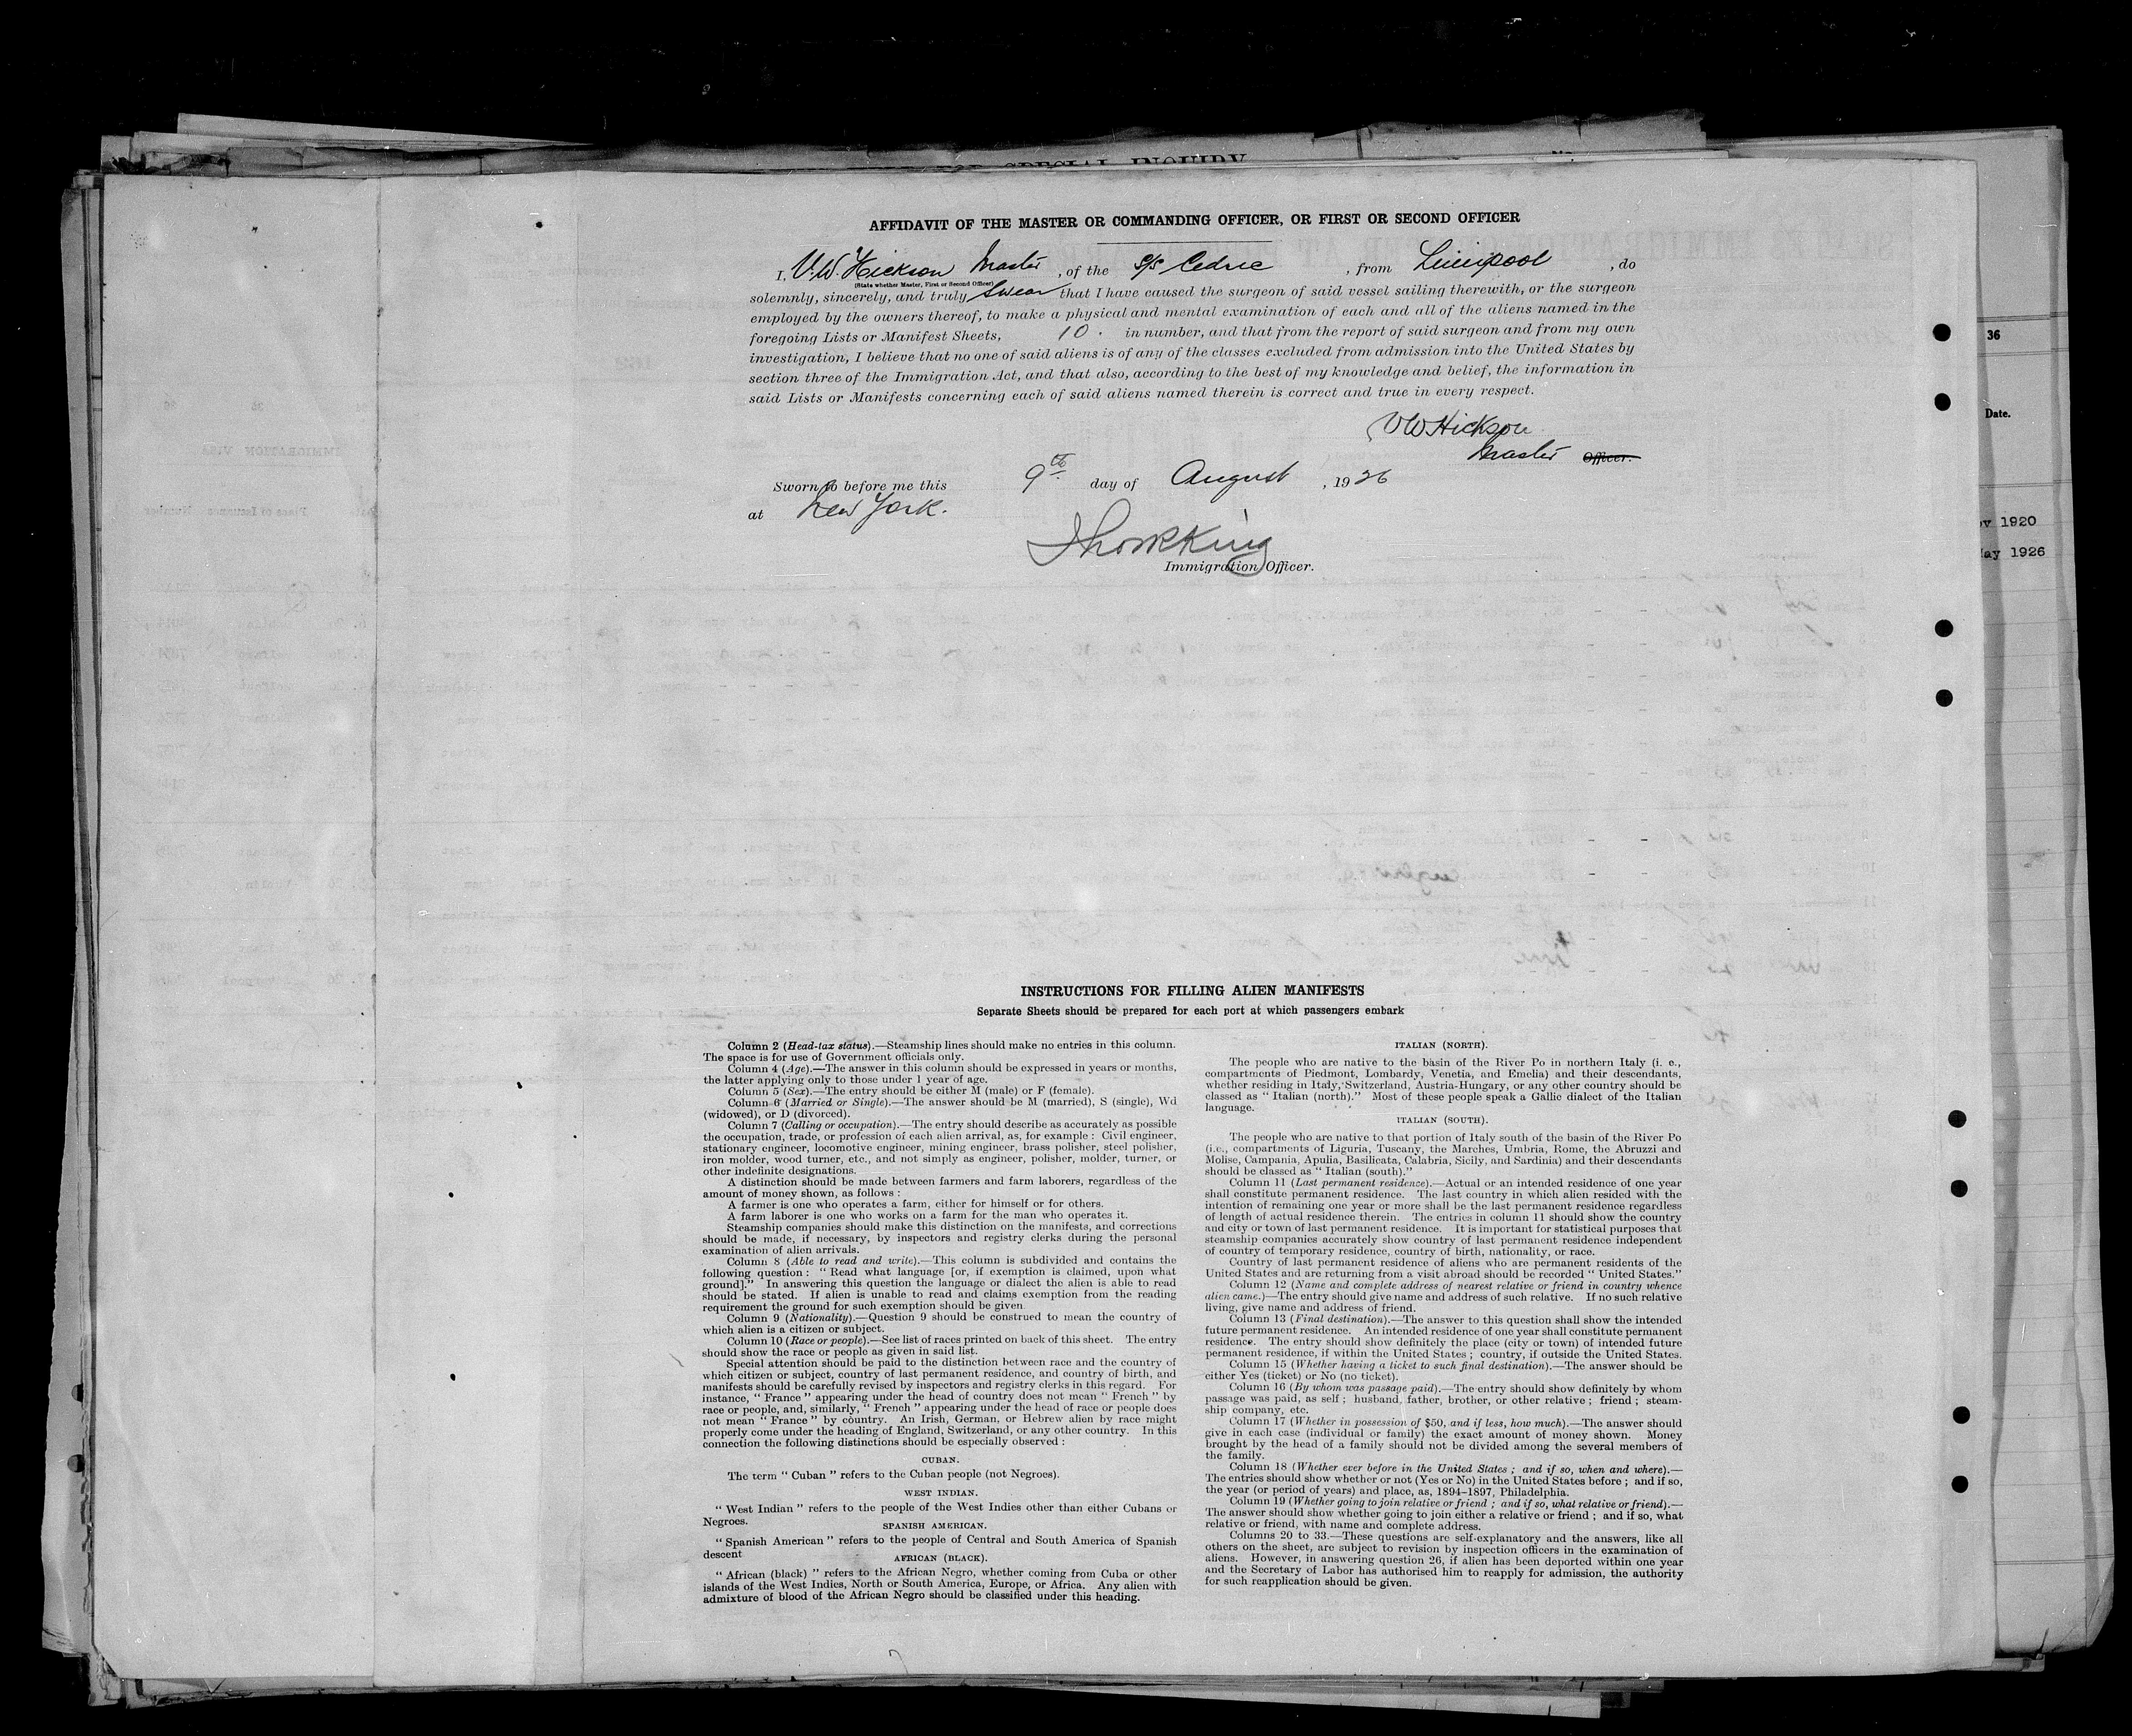 FOR SPECIAL INQUIRY
AFFIDAVIT OF THE MASTER OR COMMANDING OFFICER, OR FIRST OR SECOND OFFICER
I, V.W. Hickson Master , of the S/S Cedric , from Liverpool , do
(State whether Master, First or Second Officer)
solemnly, sincerely, and truly swear that I have caused the surgeon of said vessel sailing therewith, or the surgeon
employed by the owners thereof, to make a physical and mental examination of each and all of the aliens named in the
foregoing Lists or Manifest Sheets, 10 . in number, and that from the report of said surgeon and from my own
investigation, I believe that no one of said aliens is of any of the classes excluded from admission into the United States by
section three of the Immigration Act, and that also, according to the best of my knowledge and belief, the information in
said Lists or Manifests concerning each of said aliens named therein is correct and true in every respect.
VW Hickson
Master Officer.
Sworn to before me this 9th day of August , 1926
at New York.
Immigration Officer.
36
Date.
1920
1926
INSTRUCTIONS FOR FILLING ALIEN MANIFESTS
Separate Sheets should be prepared for each port at which passengers embark
Column 2 (Head-tax status).—Steamship lines should make no entries in this column.
The space is for use of Government officials only.
Column 4 (Age).—The answer in this column should be expressed in years or months,
the latter applying only to those under 1 year of age.
Column 5 (Sex).—The entry should be either M (male) or F (female).
Column 6 (Married or Single).—The answer should be M (married), S (single), Wd
(widowed), or D (divorced).
Column 7 (Calling or occupation).—The entry should describe as accurately as possible
the occupation, trade, or profession of each alien arrival, as, for example : Civil engineer,
stationary engineer, locomotive engineer, mining engineer, brass polisher, steel polisher,
iron molder, wood turner, etc., and not simply as engineer, polisher, molder, turner, or
other indefinite designations.
A distinction should be made between farmers and farm laborers, regardless of the
amount of money shown, as follows :
A farmer is one who operates a farm, either for himself or for others.
A farm laborer is one who works on a farm for the man who operates it.
Steamship companies should make this distinction on the manifests, and corrections
should be made, if necessary, by inspectors and registry clerks during the personal
examination of alien arrivals.
Column 8 (Able to read and write).—This column is subdivided and contains the
following question : " Read what language [or, if exemption is claimed, upon what
ground]." In answering this question the language or dialect the alien is able to read
should be stated. If alien is unable to read and claims exemption from the reading
requirement the ground for such exemption should be given
Column 9 (Nationality).—Question 9 should be construed to mean the country of
which alien is a citizen or subject.
Column 10 (Race or people).—See list of races printed on back of this sheet. The entry
should show the race or people as given in said list.
Special attention should be paid to the distinction between race and the country of
which citizen or subject, country of last permanent residence, and country of birth, and
manifests should be carefully revised by inspectors and registry clerks in this regard. For
instance, " France " appearing under the head of country does not mean " French " by
race or people, and, similarly, " French " appearing under the head of race or people does
not mean " France " by country. An Irish, German, or Hebrew alien by race might
properly come under the heading of England, Switzerland, or any other country. In this
connection the following distinctions should be especially observed :
CUBAN.
The term " Cuban " refers to the Cuban people (not Negroes).
WEST INDIAN.
" West Indian " refers to the people of the West Indies other than either Cubans or
Negroes.
SPANISH AMERICAN.
" Spanish American " refers to the people of Central and South America of Spanish
descent
AFRICAN (BLACK).
" African (black) " refers to the African Negro, whether coming from Cuba or other
islands of the West Indies, North or South America, Europe, or Africa. Any alien with
admixture of blood of the African Negro should be classified under this heading.
ITALIAN (NORTH).
The people who are native to the basin of the River Po in northern Italy (i. e.,
compartments of Piedmont, Lombardy, Venetia, and Emelia) and their descendants,
whether residing in Italy, Switzerland, Austria-Hungary, or any other country should be
classed as " Italian (north)." Most of these people speak a Gallic dialect of the Italian
language.
ITALIAN (SOUTH).
The people who are native to that portion of Italy south of the basin of the River Po
(i.e., compartments of Liguria, Tuscany, the Marches, Umbria, Rome, the Abruzzi and
Molise, Campania, Apulia, Basilicata, Calabria, Sicily, and Sardinia) and their descendants
should be classed as " Italian (south)."
Column 11 (Last permanent residence).—Actual or an intended residence of one year
shall constitute permanent residence. The last country in which alien resided with the
intention of remaining one year or more shall be the last permanent residence regardless
of length of actual residence therein. The entries in column 11 should show the country
and city or town of last permanent residence. It is important for statistical purposes that
steamship companies accurately show country of last permanent residence independent
of country of temporary residence, country of birth, nationality, or race.
Country of last permanent residence of aliens who are permanent residents of the
United States and are returning from a visit abroad should be recorded " United States."
Column 12 (Name and complete address of nearest relative or friend in country whence
alien came.)—The entry should give name and address of such relative. If no such relative
living, give name and address of friend.
Column 13 (Final destination).—The answer to this question shall show the intended
future permanent residence. An intended residence of one year shall constitute permanent
residence. The entry should show definitely the place (city or town) of intended future
permanent residence, if within the United States ; country, if outside the United States.
Column 15 (Whether having a ticket to such final destination).—The answer should be
either Yes (ticket) or No (no ticket).
Column 16 (By whom was passage paid).—The entry should show definitely by whom
passage was paid, as self ; husband, father, brother, or other relative ; friend ; steam-
ship company, etc.
Column 17 (Whether in possession of $50, and if less, how much).—The answer should
give in each case (individual or family) the exact amount of money shown. Money
brought by the head of a family should not be divided among the several members of
the family.
Column 18 (Whether ever before in the United States ; and if so, when and where).—
The entries should show whether or not (Yes or No) in the United States before ; and if so,
the year (or period of years) and place, as, 1894-1897, Philadelphia.
Column 19 (Whether going to join relative or friend ; and if so, what relative or friend).—
The answer should show whether going to join either a relative or friend ; and if so, what
relative or friend, with name and complete address.
Columns 20 to 33.—These questions are self-explanatory and the answers, like all
others on the sheet, are subject to revision by inspection officers in the examination of
aliens. However, in answering question 26, if alien has been deported within one year
and the Secretary of Labor has authorised him to reapply for admission, the authority
for such reapplication should be given.